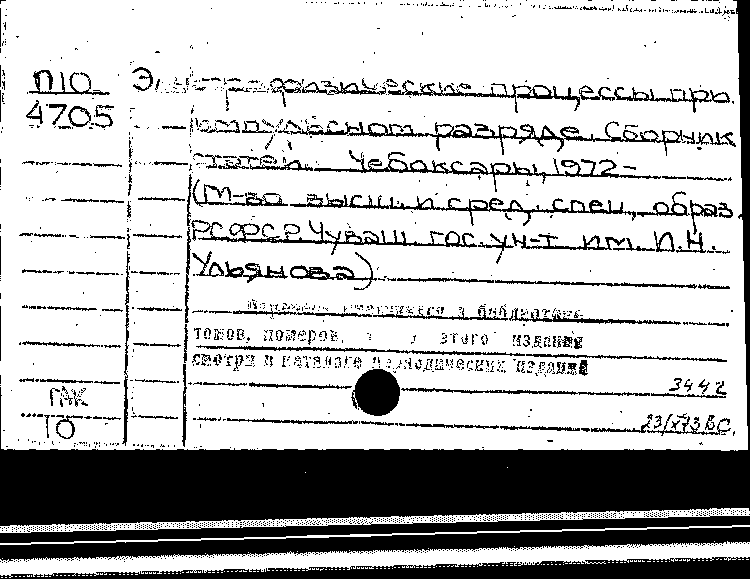 П10
4705
Электрофизические процессы при
импульсном разряде. Сборник
статей. Чебоксары, 1972-
(М-во высш. и сред. спец. образ.
РСФСР. Чуваш. гос. ун-т им. И.Н.
Ульянова)
Перечень имеющихся в библиотеке
томов, номеров, этого издания
смотри в каталоге периодических изданий
3442
ГАК
10
23/X73 ВС.